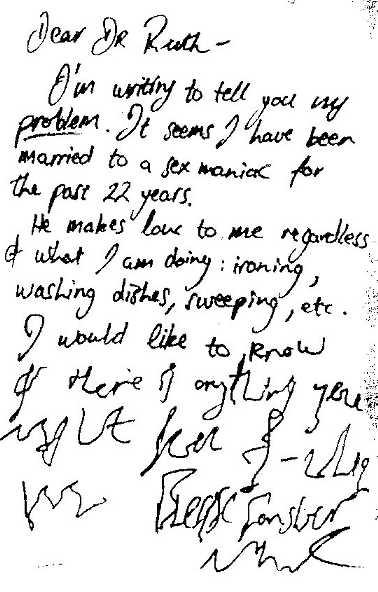 Dear Dr Ruth -
I'm writing to tell you my
problem. It seems I have been
married to a sex maniac for
the past 22 years.
He makes love to me regardless
of what I am doing: ironing,
washing dishes, sweeping, etc.
I would like to know
if there is anything